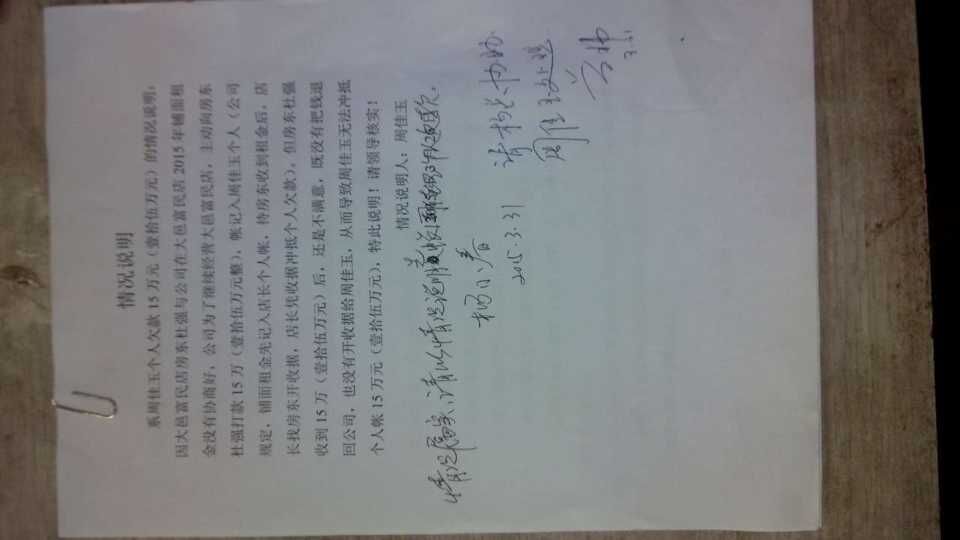 情况说明
系周佳玉个人欠款 15 万元（壹拾伍万元）的情况说明：
因大邑富民店房东杜强与公司在大邑富民店 2015 年铺面租
金没有协商好，公司为了继续经营大邑富民店，主动向房东
杜强打款 15 万（壹拾伍万元整），帐记入周佳玉个人（公司
规定，铺面租金先记入店长个人帐，待房东收到租金后，店
长找房东开收据，店长凭收据冲抵个人欠款），但房东杜强
收到 15 万（壹拾伍万元）后，还是不满意，既没有把钱退
回公司，也没有开收据给周佳玉，从而导致周佳玉无法冲抵
个人帐 15 万元（壹拾伍万元），特此说明！请领导核实！
情况说明人：周佳玉
情况属实，请以情况说明
杨小春
2015.3.31
请 协助
周佳玉处理
3.31